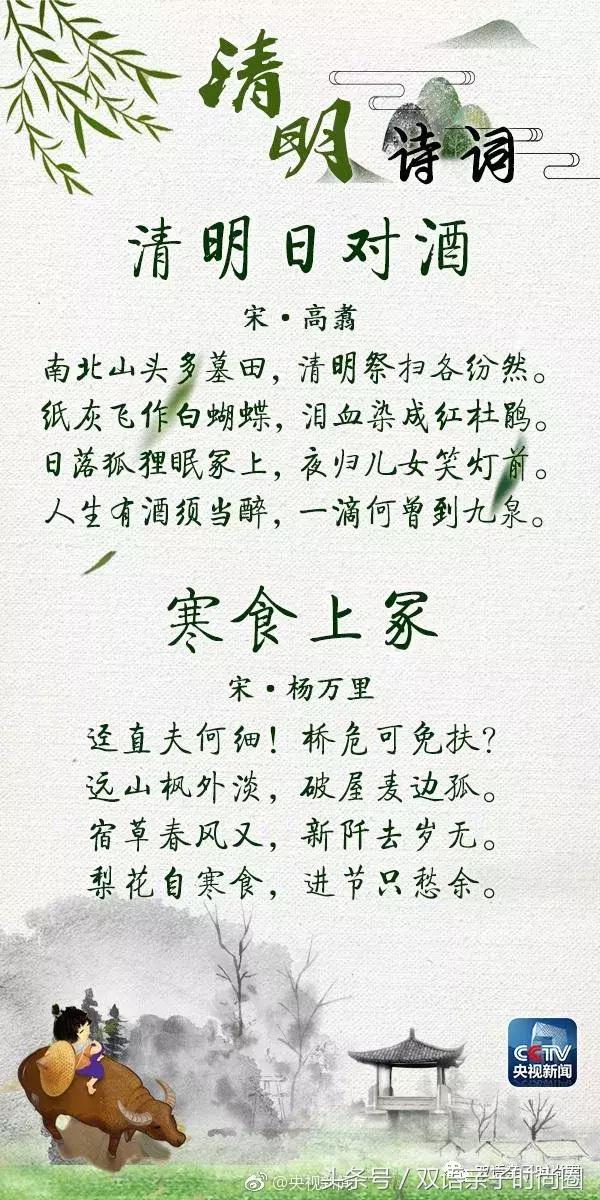 清明
诗词
清明日对酒
宋·高翥
南北山头多墓田，清明祭扫各纷然。
纸灰飞作白蝴蝶，泪血染成红杜鹃。
日落狐狸眠冢上，夜归儿女笑灯前。
人生有酒须当醉，一滴何曾到九泉。
寒食上冢
宋·杨万里
迳直夫何细！桥危可免扶？
远山枫外淡，破屋麦边孤。
宿草春风又，新阡去岁无。
梨花自寒食，进节只愁余。
CCTV
央视新闻
头条号／双语亲子时尚圈